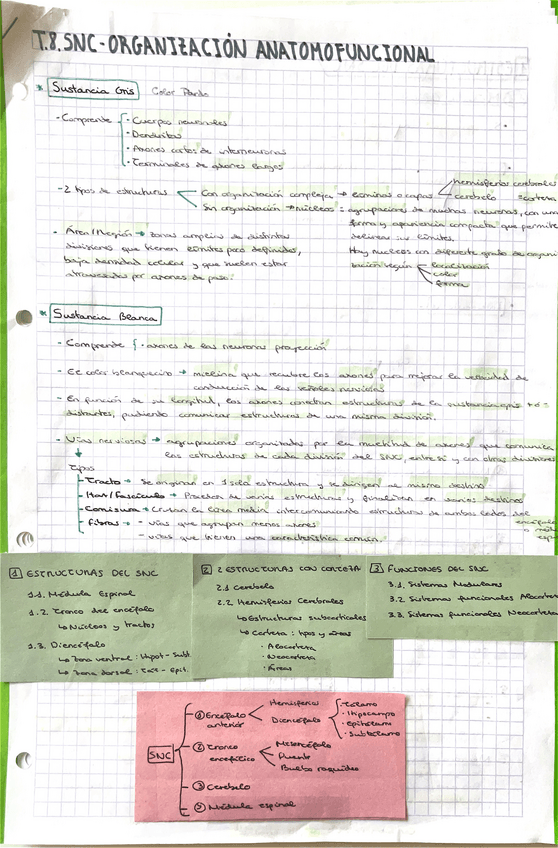 T.8. SNC - ORGANIZACIÓN ANATOMOFUNCIONAL
* Sustancia Gris Color Pardo
- Comprende
· Cuerpos neuronales
· Dendritas
· Axones cortos de interneuronas
· Terminales de axones largos
- 2 tipos de estructuras
Con organización compleja → láminas o capas
hemisferios cerebrales
cerebelo
Sin organización → núcleos: agrupaciones de muchas neuronas, con una
forma y apariencia compacta que permite
delinear su límites.
Hay núcleos con diferente grado de organi
zación según
localización
color
forma
· Área/Región → zonas amplias de distintas
divisiones que tienen límites poco definidos,
baja densidad celular y que suelen estar
atravesadas por axones de paso.
* Sustancia Blanca
- Comprende { · axones de las neuronas proyección
- Es color blanquecino → mielina que recubre los axones para mejorar la velocidad de
conducción de las señales nerviosas
- En función de su longitud, los axones conectan estructuras de la sustancia gris + o -
distantes, pudiendo comunicar estructuras de una misma división.
- Vías nerviosas → agrupaciones organizadas por la multitud de axones que comunica
las estructuras de cada división del SNC, entre sí y con otras divisiones
Tipos
- Tracto → Se originan en 1 sola estructura y se dirigen al mismo destino
- Haz/Fascículo → Proceden de varias estructuras y finalizan en varios destinos
- Comisura → Cruzan la línea media intercomunicando estructuras de ambos lados del
encéfalo
- Fibras → - vías que agrupan menos axones
- vías que tienen una característica común.
1 ESTRUCTURAS DEL SNC
1.1. Médula Espinal
1.2. Tronco del encéfalo
↳ Núcleos y tractos
1.3. Diencéfalo
↳ Zona ventral: Hipot - Subt
↳ Zona dorsal: Tál - Epit.
2 2 ESTRUCTURAS CON CORTEZA
2.1 Cerebelo
2.2 Hemisferios Cerebrales
↳ Estructuras subcorticales
↳ Corteza: tipos y áreas
· Alocorteza
· Neocorteza
· Áreas
3 FUNCIONES DEL SNC
3.1. Sistemas Modulares
3.2 Sistemas funcionales Alocorteza
3.3. Sistemas funcionales Neocorteza
SNC
① Encéfalo anterior
Hemisferios
Diencéfalo
· Tálamo
· Hipocampo
· Epitálamo
· Subtálamo
② Tronco encefálico
Mesencéfalo
Puente
Bulbo raquídeo
③ Cerebelo
⑤ Médula espinal